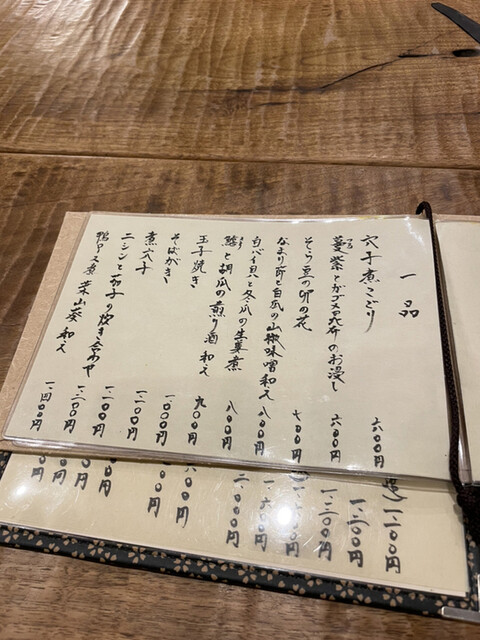 一品
穴子煮こごり 六〇〇円
蔓紫とがごめ昆布のお浸し 六〇〇円
そら豆の卯の花 七〇〇円
なまり節と白瓜の山椒味噌和え 八〇〇円
白バイ貝と冬瓜の生姜煮 八〇〇円
と胡瓜の煎り酒和え 九〇〇円
玉子焼き 一、〇〇〇円
そばがき
煮穴子
ニシンと茄子の炊き合わせ
鴨ロース煮 葉山葵和え 一、四〇〇円
一、二〇〇円
一、二〇〇円
一、二〇〇円
一、六〇〇円
二、〇〇〇円